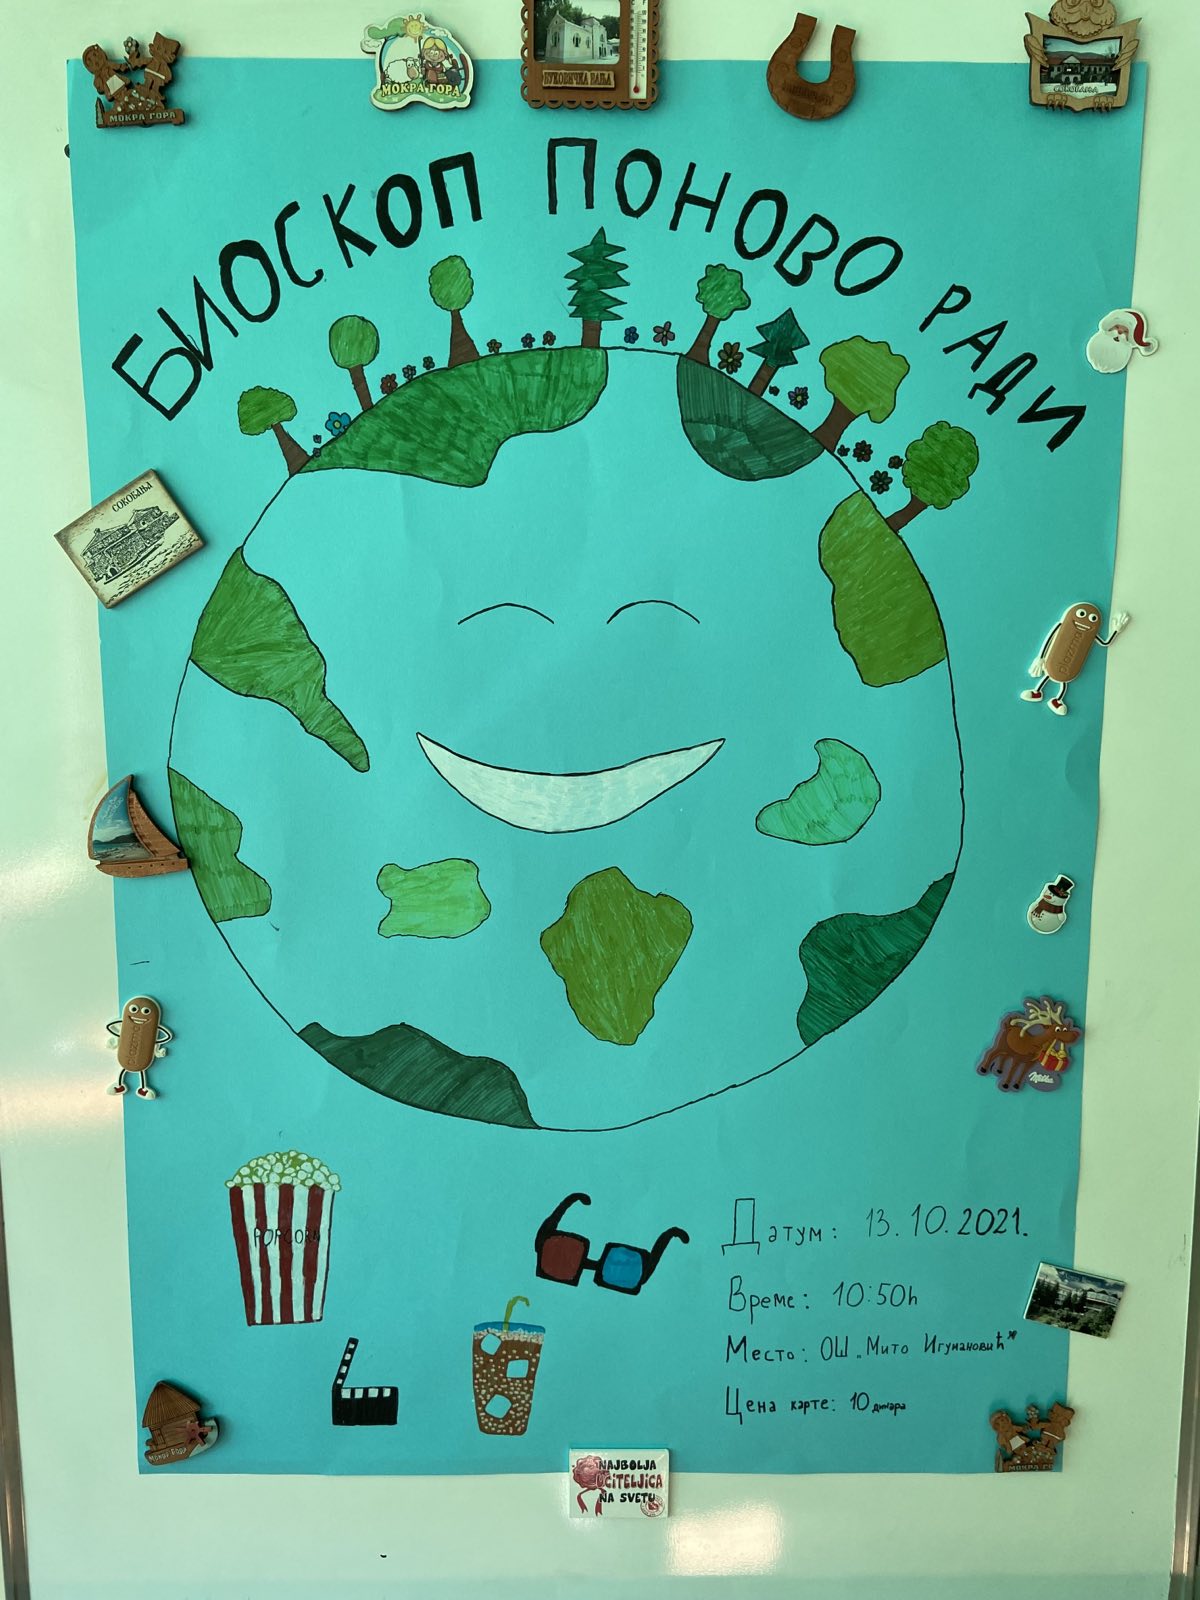 МОКРА ГОРА
МОКРА ГОРА
БУКОВИЧКА БАЊА
СОКОБАЊА
БИОСКОП ПОНОВО РАДИ
СОКОБАЊА
plazma
plazma
Milka
POPCORN
Датум: 13.10.2021.
Време: 10:50h
Место: ОШ „Мито Игумановић"
Цена карте: 10 динара
МОКРА ГОРА
МОКРА ГО
NAJBOLJA
UČITELJICA
NA SVETU